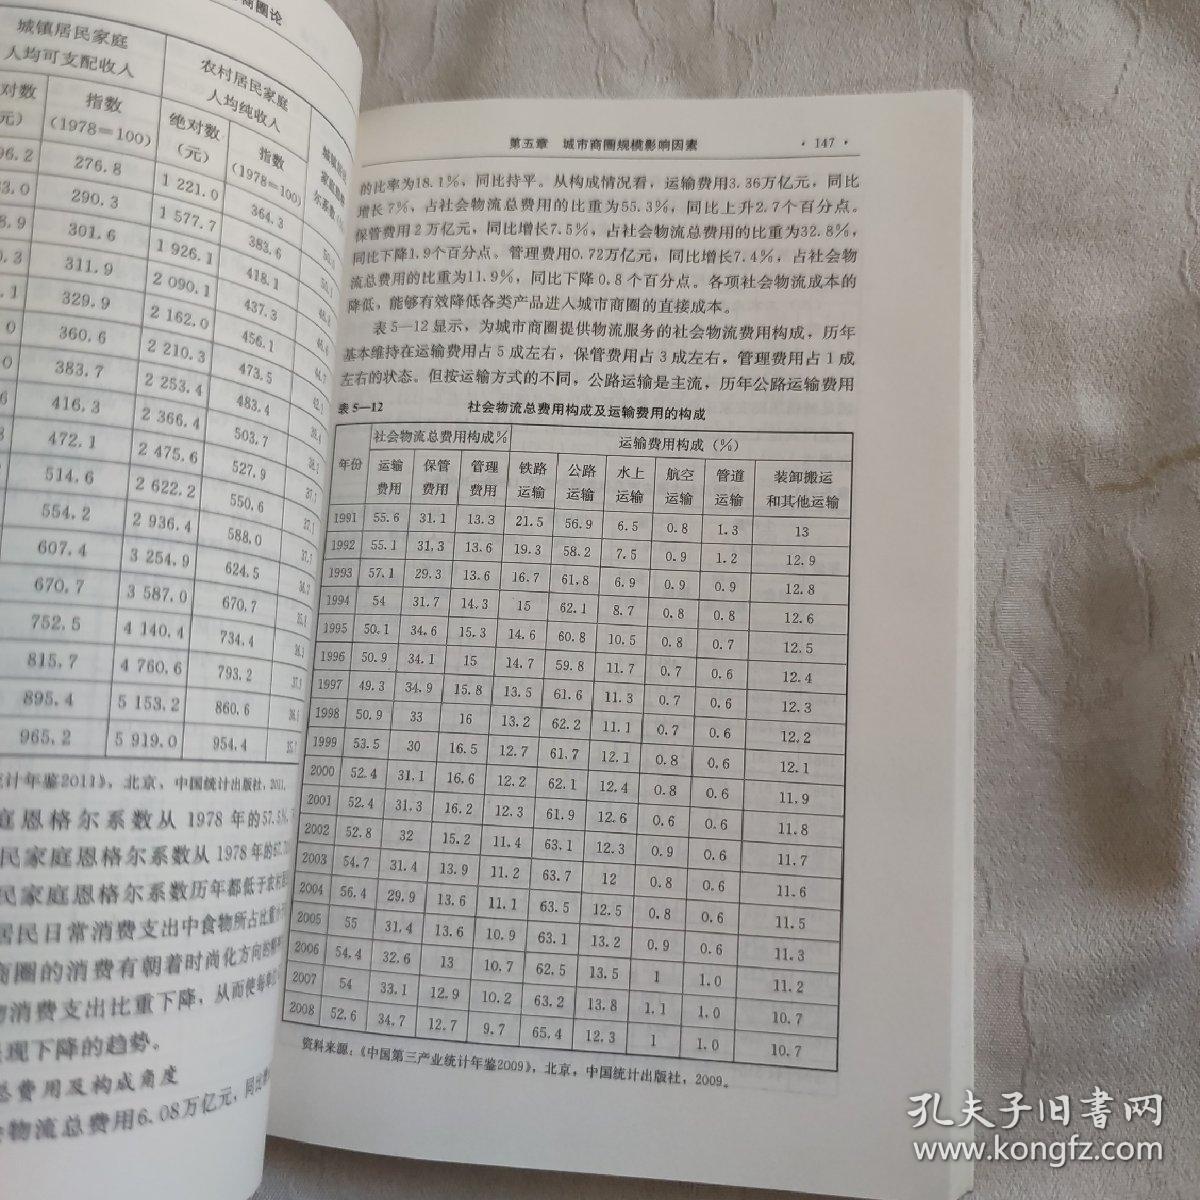 商圈论
城镇居民家庭 农村居民家庭
人均可支配收入 人均纯收入
对数 指数 绝对数 指数
元) (1978=100) (元) (1978=100)
96.2 276.8 1 221.0 364.3
3.0 290.3 1 577.7 383.6
8.9 301.6 1 926.1 418.1
0.3 311.9 2 090.1 437.3
.1 329.9 2 162.0 456.1
0 360.6 2 210.3 473.5
0 383.7 2 253.4 483.4
6 416.3 2 366.4 503.7
8 472.1 2 475.6 527.9
514.6 2 622.2 550.6
554.2 2 936.4 588.0
607.4 3 254.9 624.5
670.7 3 587.0 670.7
752.5 4 140.4 734.4
815.7 4 760.6 793.2
895.4 5 153.2 860.6
965.2 5 919.0 954.4
计年鉴2011》，北京，中国统计出版社，2011。
庭恩格尔系数从1978年的57.5%，
民家庭恩格尔系数从1978年的67.7
民家庭恩格尔系数历年都低于农村居
居民日常消费支出中食物所占比重
商圈的消费有朝着时尚化方向的
物消费支出比重下降，从而使每
呈现下降的趋势。
总费用及构成角度
会物流总费用6.08万亿元，同比
第五章 城市商圈规模影响因素 ·147·
的比率为18.1%，同比持平。从构成情况看，运输费用3.36万亿元，同比
增长7%，占社会物流总费用的比重为55.3%，同比上升2.7个百分点。
保管费用2万亿元，同比增长7.5%，占社会物流总费用的比重为32.8%，
同比下降1.9个百分点。管理费用0.72万亿元，同比增长7.4%，占社会物
流总费用的比重为11.9%，同比下降0.8个百分点。各项社会物流成本的
降低，能够有效降低各类产品进入城市商圈的直接成本。
表5—12显示，为城市商圈提供物流服务的社会物流费用构成，历年
基本维持在运输费用占5成左右，保管费用占3成左右，管理费用占1成
左右的状态。但按运输方式的不同，公路运输是主流，历年公路运输费用
表5—12 社会物流总费用构成及运输费用的构成
年份 社会物流总费用构成% 运输费用构成（%）
运输 保管 管理 铁路 公路 水上 航空 管道 装卸搬运
费用 费用 费用 运输 运输 运输 运输 运输 和其他运输
1991 55.6 31.1 13.3 21.5 56.9 6.5 0.8 1.3 13
1992 55.1 31.3 13.6 19.3 58.2 7.5 0.9 1.2 12.9
1993 57.1 29.3 13.6 16.7 61.8 6.9 0.9 0.9 12.8
1994 54 31.7 14.3 15 62.1 8.7 0.8 0.8 12.6
1995 50.1 34.6 15.3 14.6 60.8 10.5 0.8 0.7 12.5
1996 50.9 34.1 15 14.7 59.8 11.7 0.7 0.6 12.4
1997 49.3 34.9 15.8 13.5 61.6 11.3 0.7 0.6 12.3
1998 50.9 33 16 13.2 62.2 11.1 0.7 0.6 12.2
1999 53.5 30 16.5 12.7 61.7 12.1 0.8 0.6 12.1
2000 52.4 31.1 16.6 12.2 62.1 12.4 0.8 0.6 11.9
2001 52.4 31.3 16.2 12.3 61.9 12.6 0.6 0.6 11.8
2002 52.8 32 15.2 11.4 63.1 12.3 0.9 0.6 11.7
2003 54.7 31.4 13.9 11.2 63.7 12 0.8 0.6 11.6
2004 56.4 29.9 13.6 11.1 63.5 12.5 0.8 0.6 11.5
2005 55 31.4 13.6 10.9 63.1 13.2 0.9 0.6 11.3
2006 54.4 32.6 13 10.7 62.5 13.5 1 1.0 11.2
2007 54 33.1 12.9 10.2 63.2 13.8 1.1 1.0 10.7
2008 52.6 34.7 12.7 9.7 65.4 12.3 1 1.0 10.7
资料来源：《中国第三产业统计年鉴2009》，北京，中国统计出版社，2009。
孔夫子旧书网
www.kongfz.com